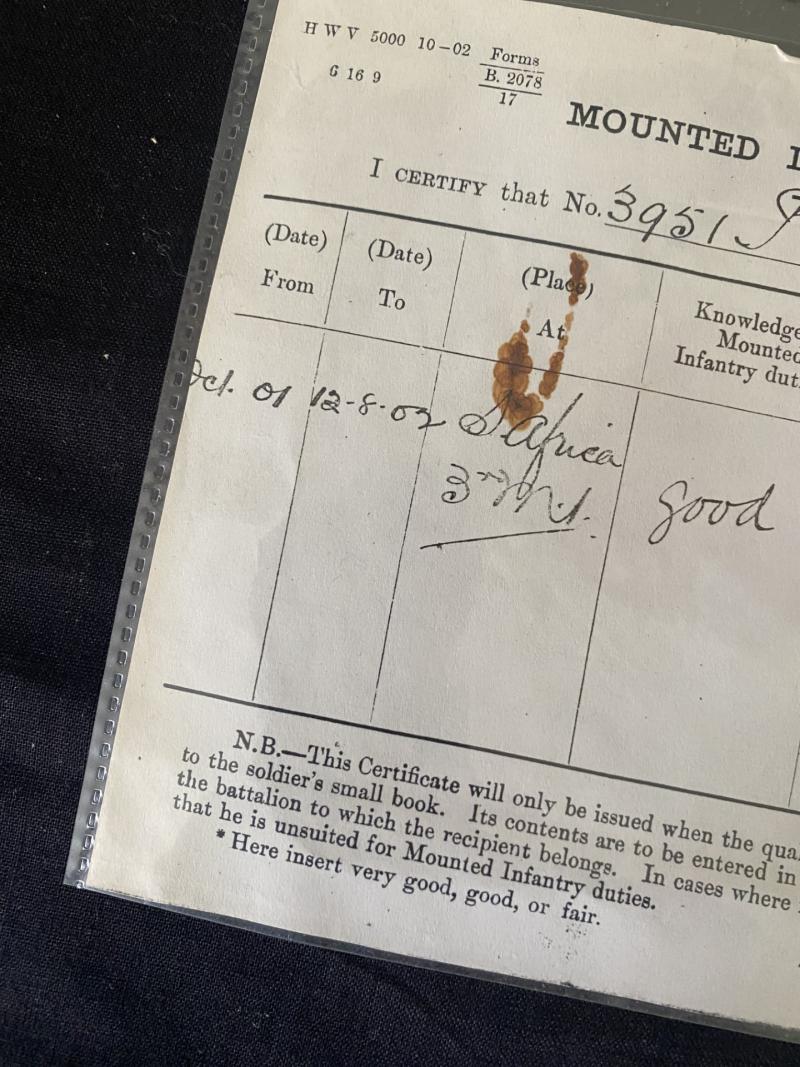 H W V 5000 10-02 Forms
G 16 9 B. 2078
17
MOUNTED
I CERTIFY that No. 3951
(Date) (Date) (Place) Knowledge
From To At Mounted
Infantry
Oct. 01 12-8-02 S Africa
3rd M.I. good
N.B.—This Certificate will only be issued when the
to the soldier's small book. Its contents are to be entered in
the battalion to which the recipient belongs. In cases where
that he is unsuited for Mounted Infantry duties.
* Here insert very good, good, or fair.